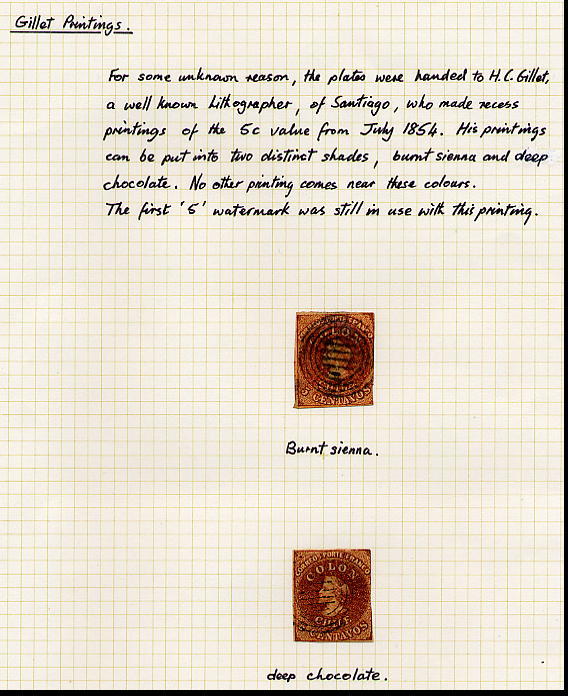 Gillet Printings.
For some unknown reason, the plates were handed to H.C. Gillet,
a well known Lithographer, of Santiago, who made recess
printings of the 5c value from July 1854. His printings
can be put into two distinct shades, burnt sienna and deep
chocolate. No other printing comes near these colours.
The first '5' watermark was still in use with this printing.
COLON
5 CENTAVOS
Burnt sienna.
CORREOS PORTE FRANCO
COLON
CHILE
CENTAVOS
deep chocolate.